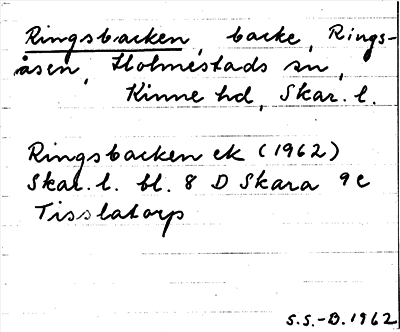 Ringsbacken, backe, Rings-
åsen, Holmestads sn,
Kinne hd, Skar. l.
Ringsbacken ek (1962)
Skar. l. bl. 8 D Skara 9 c
Tisslatorp
S.S.-B. 1962